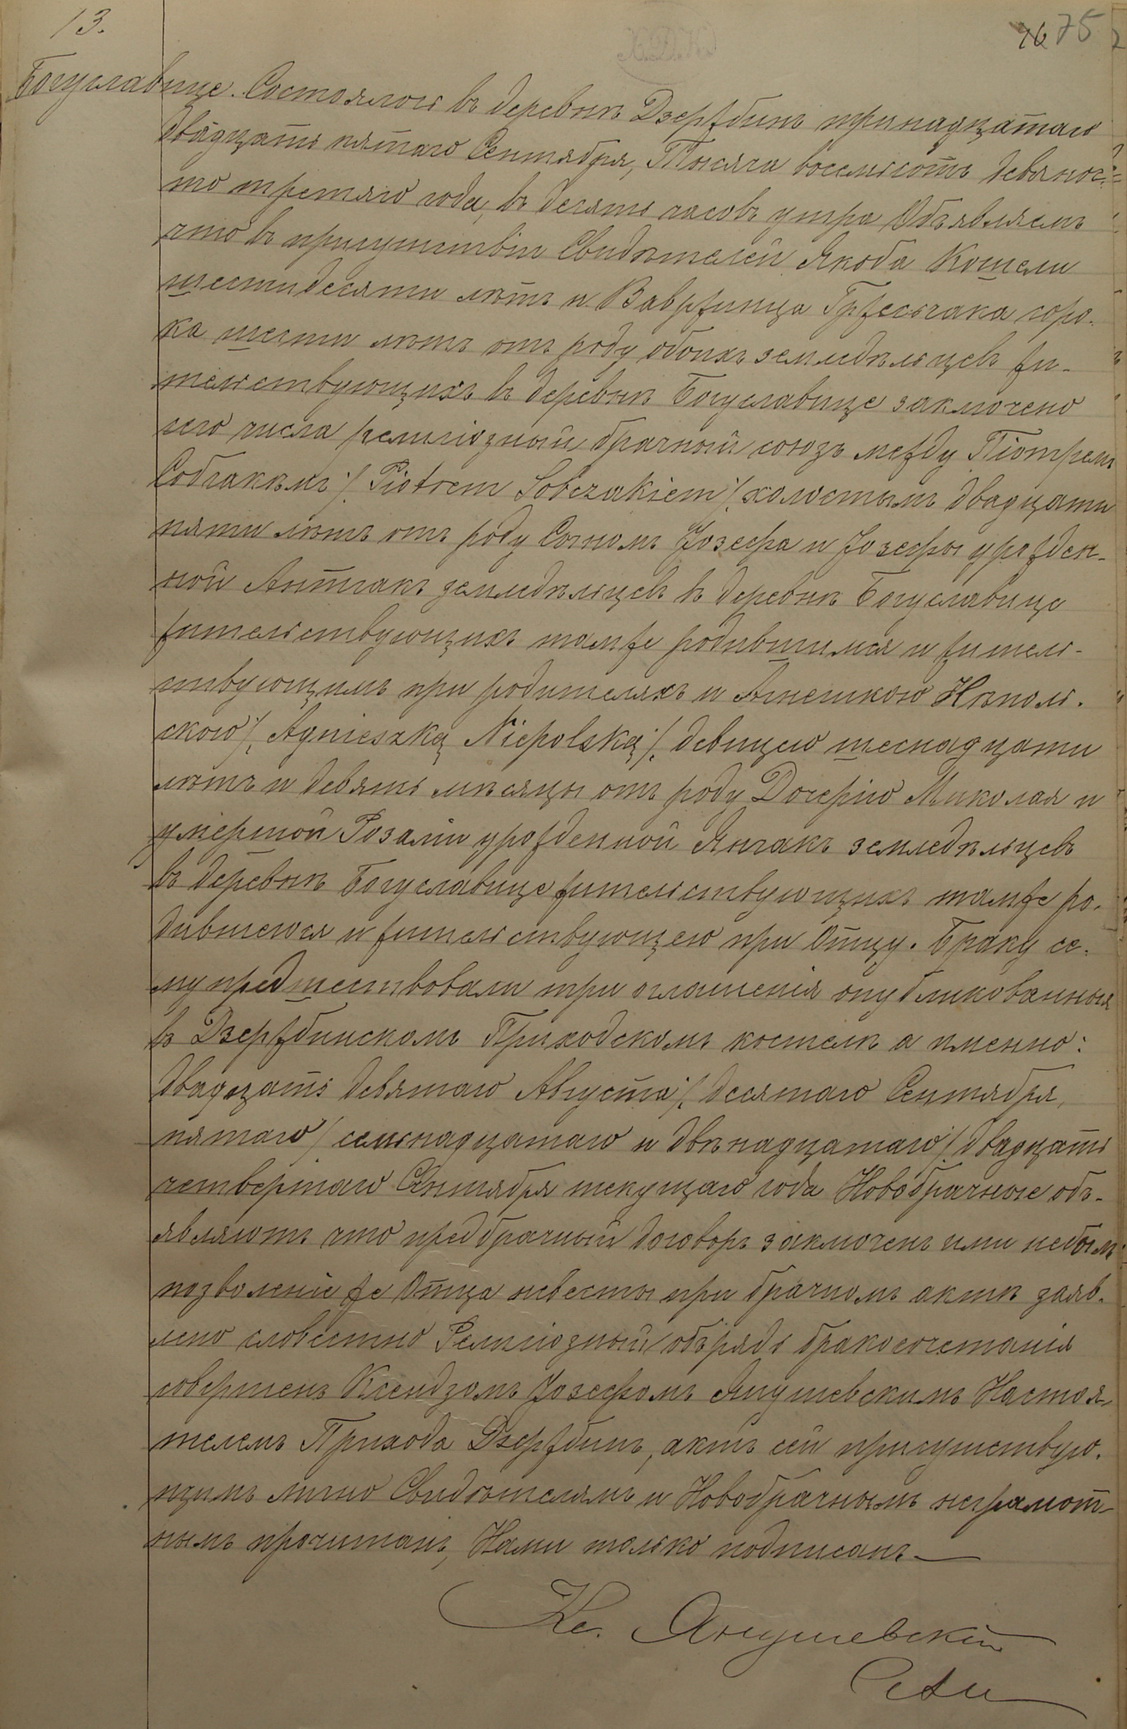 13.
75
Богуславице. Состоялось въ деревнѣ Дзержбинъ тринадцатаго
двадцать пятаго Сентября, Тысяча восемьсотъ девянос-
то третяго года, въ десять часовъ утра Объявляемъ
что въ присутствіи Свидѣтелей Якоба Кошели
шестидесяти лѣтъ и Вавржинца Гржесьчака соро-
ка шести лѣтъ отъ роду, обоихъ земледѣльцевъ жи-
тельствующихъ въ деревнѣ Богуславице заключено
сего числа религіозный брачный союзъ между Піотремъ
Собчакѣмъ /Piotrem Sobczakiem/, холостымъ двадцати
пяти лѣтъ отъ роду Сыномъ Юзефа и Юзефы урожден-
ной Антчакъ земледѣльцевъ въ деревнѣ Богуславице
жительствующихъ тамже родившимся и житель-
ствующимъ при родителяхъ и Агнешкою Нѣполь-
скою /Agnieszką Niepolską/, девицею шеснадцати
лѣтъ и девять мѣсяцы отъ роду Дочерію Миколая и
умершой Розаліи урожденной Янчакъ земледѣльцевъ
въ деревнѣ Богуславице жительствующихъ тамже ро-
дившеюся и жительствующею при Отцу. Браку се-
му предшествовали три оглашенія опубликованныя
въ Дзержбинскомъ Приходскомъ костелѣ а именно:
двадцать девятаго Августа / десятаго Сентября,
пятаго / семьнадцатаго и двѣнадцатаго / двадцать
четвертаго Сентября текущаго года Новобрачные объ-
являютъ что предбрачный договоръ заключенъ ими небылъ
позволеніе же Отца невесты при брачномъ актѣ заяв-
лено словестно Религіозный обрядъ бракосочетанія
совершенъ Ксендзомъ Юзефомъ Янушевскимъ Настоя-
телемъ Прихода Дзержбинъ, актъ сей присутствую-
щимъ лично Свидѣтелямъ и Новобрачнымъ неграмот-
нымъ прочитанъ, Нами только подписанъ —
Кс. Янушевскій